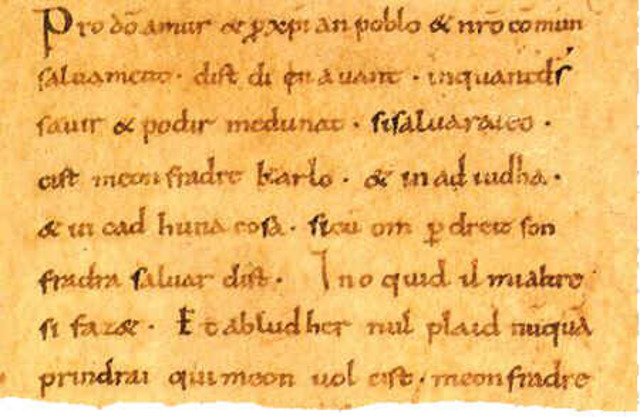 Pro dō amur & ꝑ xp̄i an poblo & nr̄o cōmun
saluament · dist di en auant · inquantds
sauir & podir medunat · sisaluaraieo ·
cist meon fradre karlo · & in ad iudha ·
& in cad huna cosa · sicū om ꝑ dreit son
fradra saluar dist · Ino quid il mialtre
si faz& · Et abludher nul plaid nūquā
prindrai qui meon uol cist · meon fradre